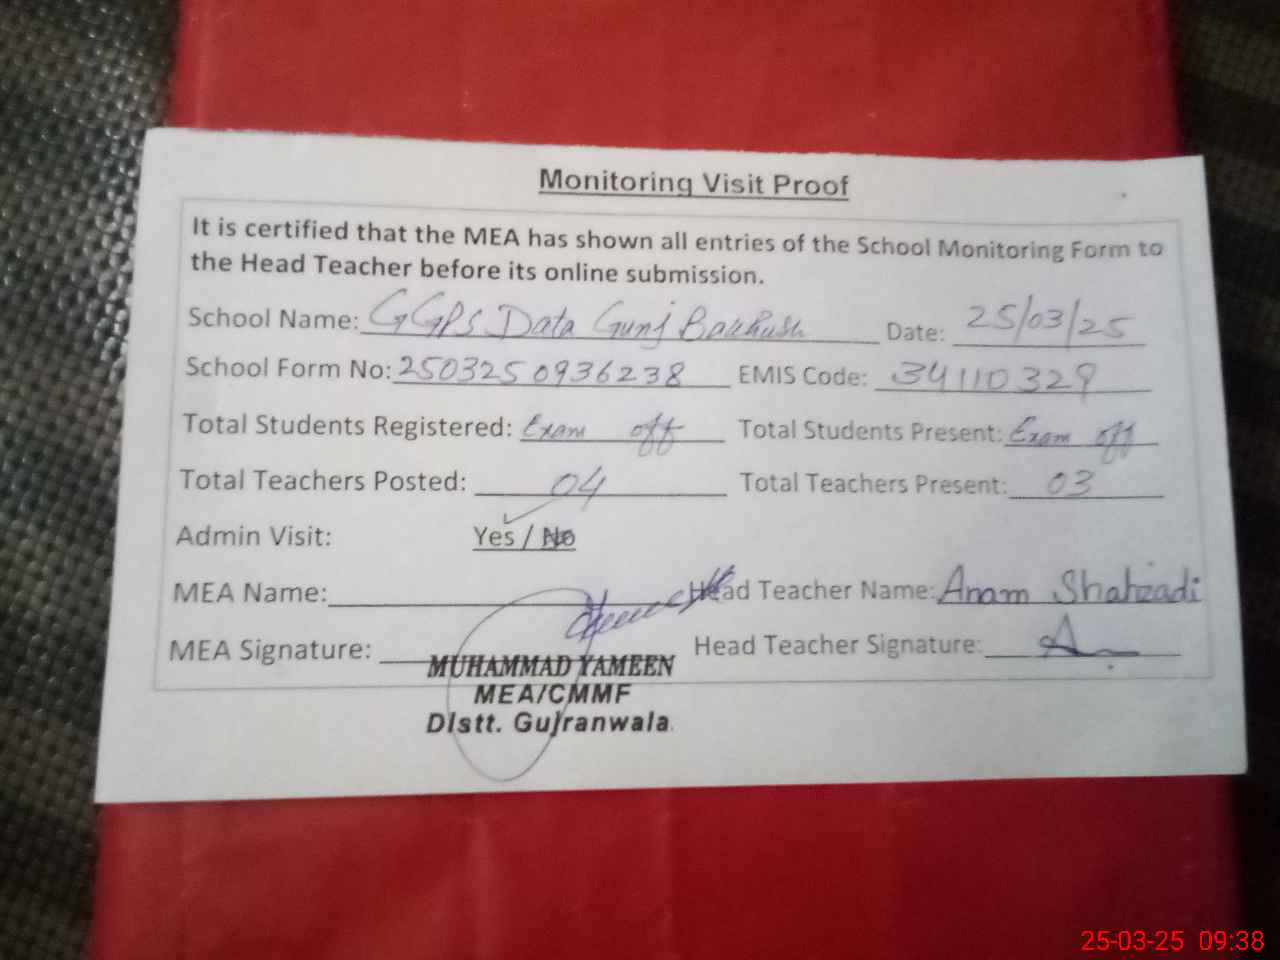 Monitoring Visit Proof
It is certified that the MEA has shown all entries of the School Monitoring Form to
the Head Teacher before its online submission.
School Name: GGPS Data Gunj Bakhush Date: 25/03/25
School Form No: 2503250936238 EMIS Code: 34110329
Total Students Registered: Exam off Total Students Present: Exam off
Total Teachers Posted: 04 Total Teachers Present: 03
Admin Visit: Yes / No
MEA Name: Head Teacher Name: Anam Shahzadi
MEA Signature: Head Teacher Signature:
MUHAMMAD YAMEEN
MEA/CMMF
Distt. Gujranwala.
25-03-25 09:38